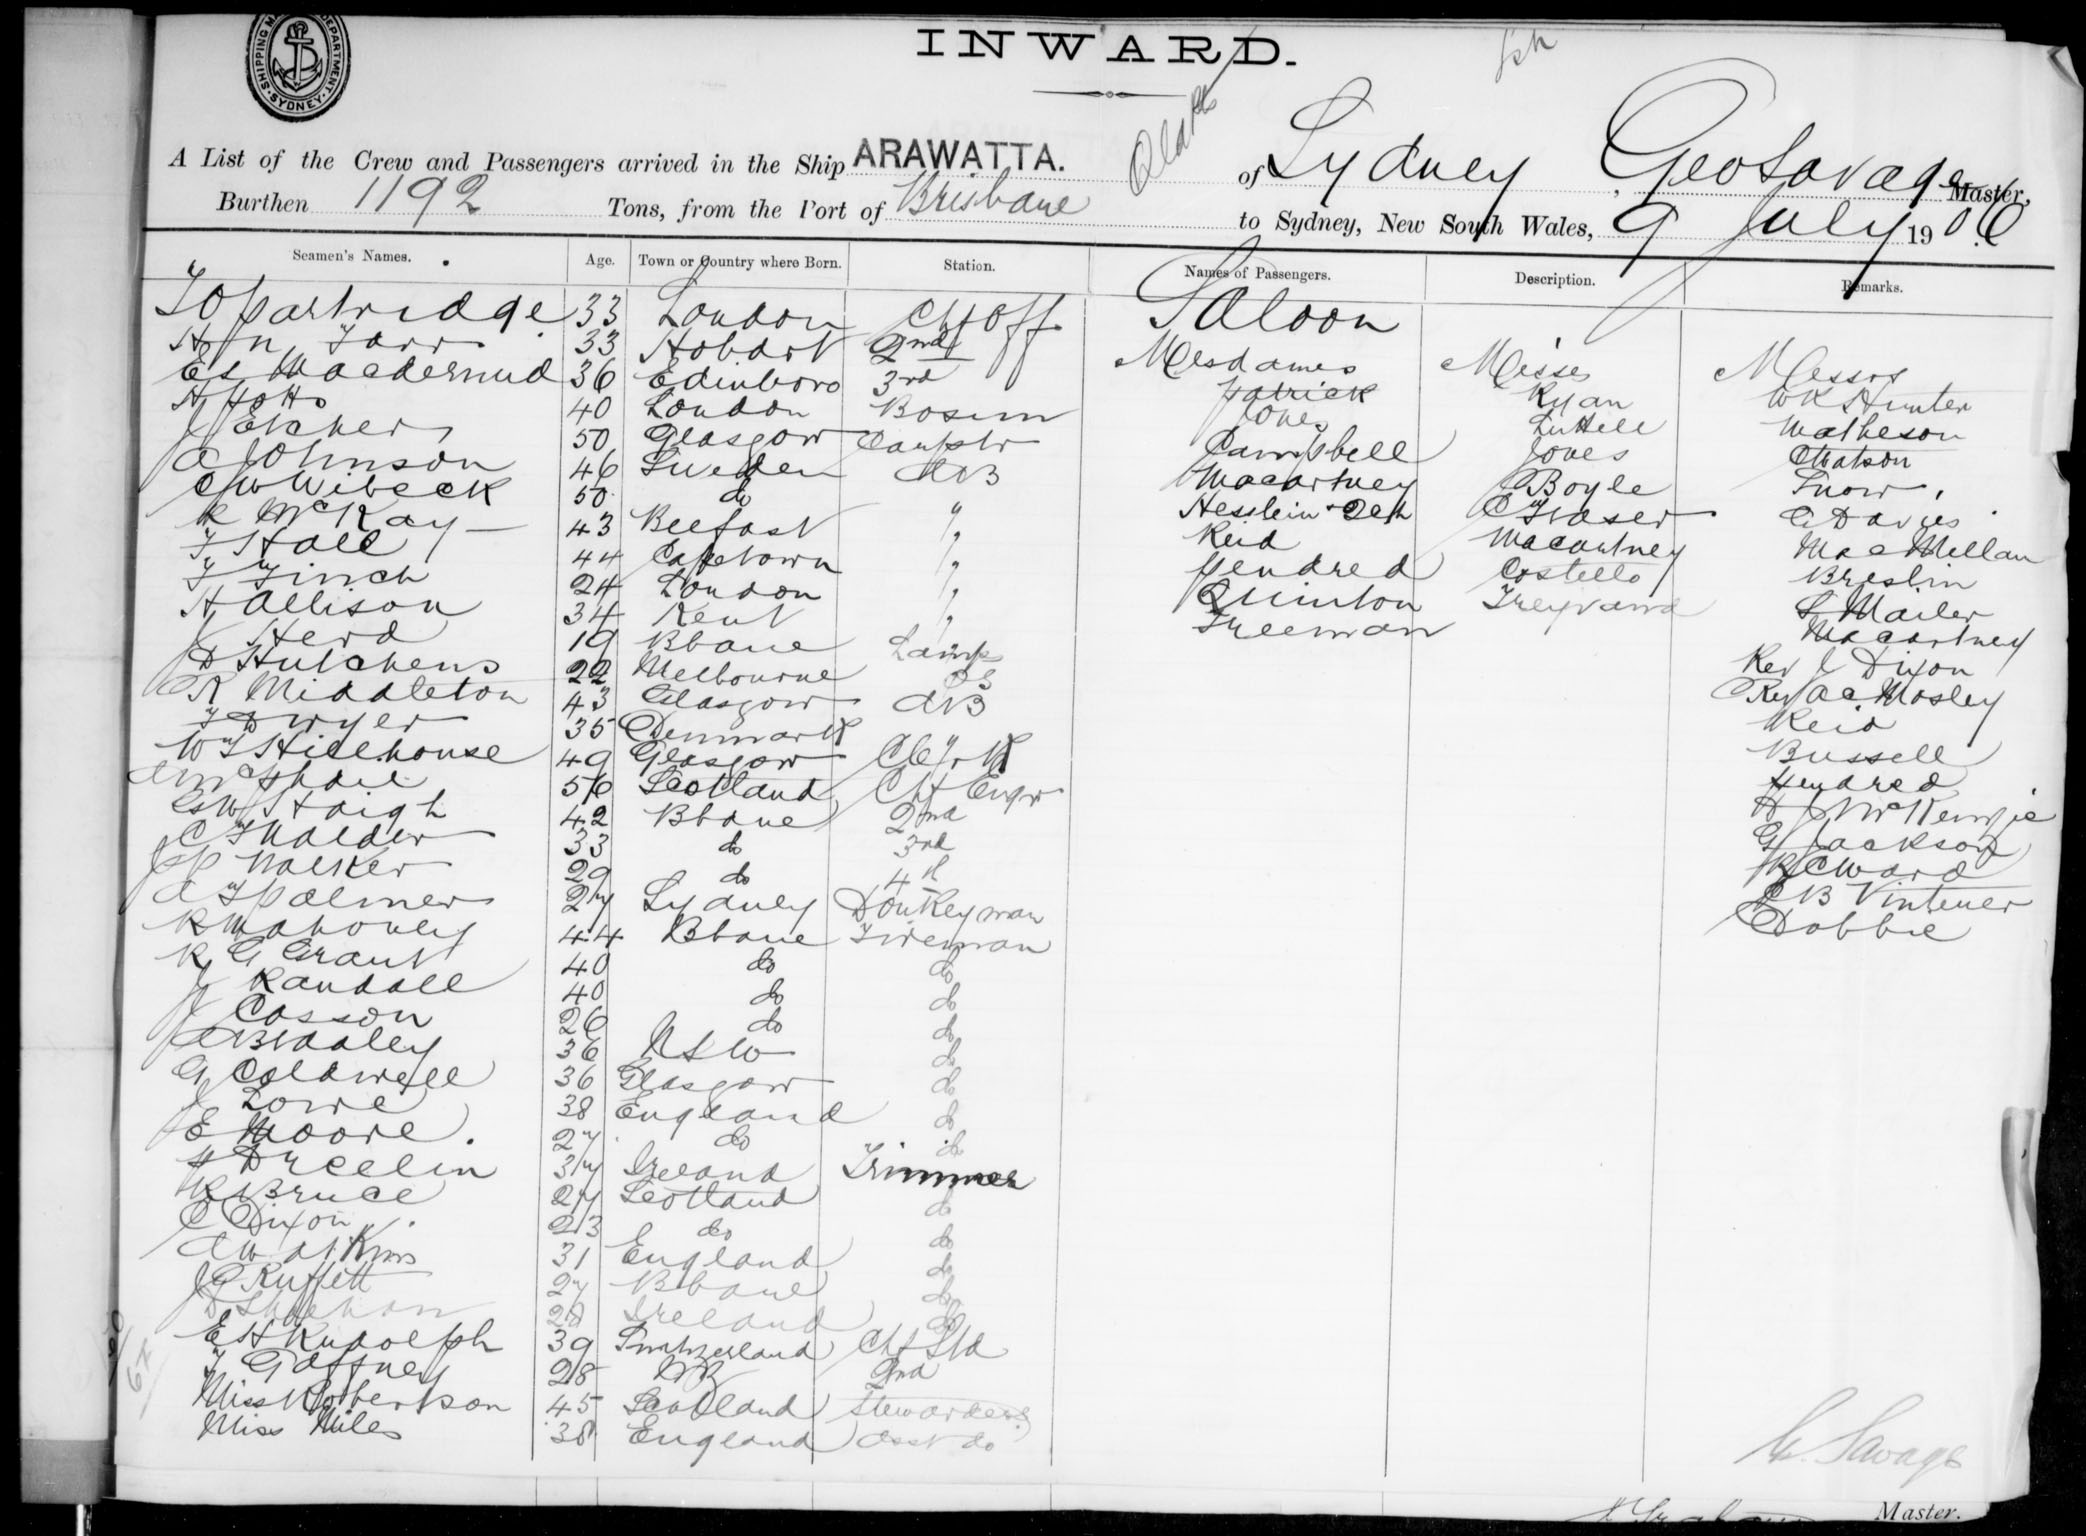 SHIPPING MASTER'S DEPARTMENT. SYDNEY.
INWARD.
A List of the Crew and Passengers arrived in the Ship ARAWATTA. of Sydney Geo Savage Master,
Burthen 1192 Tons, from the Port of Brisbane to Sydney, New South Wales, 9 July 1906
Seamen's Names. Age. Town or Country where Born. Station. Names of Passengers. Description. Remarks.
Partridge 33 London Chf Off
H N Tarr 33 Hobart 2nd
Macdermid 36 Edinboro 3rd
H Potts 40 London Bosun
J Etcher 50 Glasgow Lampstr
A Johnson 46 Sweden AB
C W Wibeck 50 do
R McKay 43 Belfast "
T Hall 44 Capetown "
T Finch 24 London "
H Allison 34 Kent "
J Herd 19 Bbane Lamps
D Hutchens 22 Melbourne OS
R Middleton 43 Glasgow AB
T Dwyer 35 Denmark "
W T Hillhouse 49 Glasgow Clerk
A McPhail 56 Scotland Chf Engr
Haigh 42 Bbane 2nd
33 do 3rd
Walker 29 do 4th
A T Palmer 27 Sydney Donkeyman
R Mahoney 44 Bbane Fireman
R G Grant 40 do do
J Randall 40 do do
J Casson 26 do do
A Bradley 36 NSW do
G Caldwell 36 Glasgow do
J Lowe 38 England do
E Moore 27 do do
37 Ireland Trimmer
W Bruce 27 Scotland do
C Dixon 23 do do
A Watkins 31 England do
J G Ruffett 27 Bbane do
D Sheehan 28 Ireland do
E H Rudolph 39 Switzerland Chf Std
T Gaffney 28 2nd
Miss Robertson 45 Scotland Stewardess
Miss Miles 38 England Asst do
Saloon
Mesdames
Patrick
Jones
Campbell
Macartney
Hesslein + 2ch
Reid
Hendred
Quinton
Freeman
Misses
Ryan
Luttell
Jones
Boyle
C Fraser
Macartney
Costello
Messrs
W K Hunter
Matheson
Watson
Snow
G Davies
MacMillan
Breslin
S Mailer
Macartney
Rev J Dixon
Rev A C Mosley
Reid
Bussell
Hendred
H J McKenzie
G Jackson
R C Ward
C B Vintener
Dobbie
G. Savage
Master.